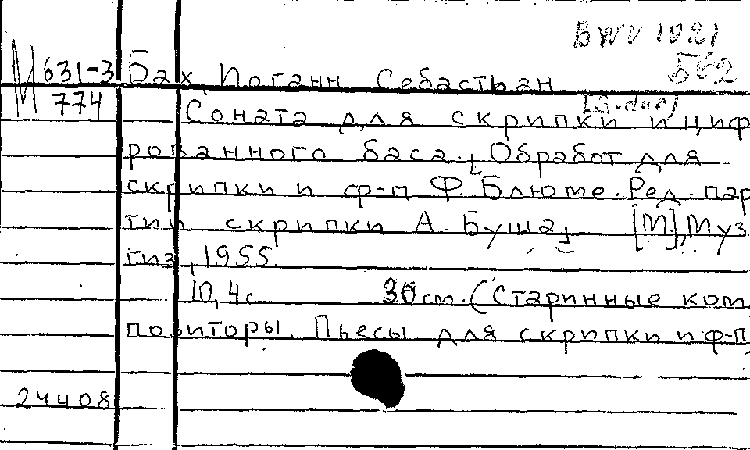 BWV 1021
М 631-3 Бах, Иоганн Себастьян Б62
774 [G-dur]
Соната для скрипки и циф
рованного баса. Обработ для
скрипки и ф-п Ф Блюме. Ред. пар
тии скрипки А. Буша. [М], Муз
гиз, 1955.
10, 4 с 30 cm. (Старинные ком
позиторы. Пьесы для скрипки и ф-п
24408